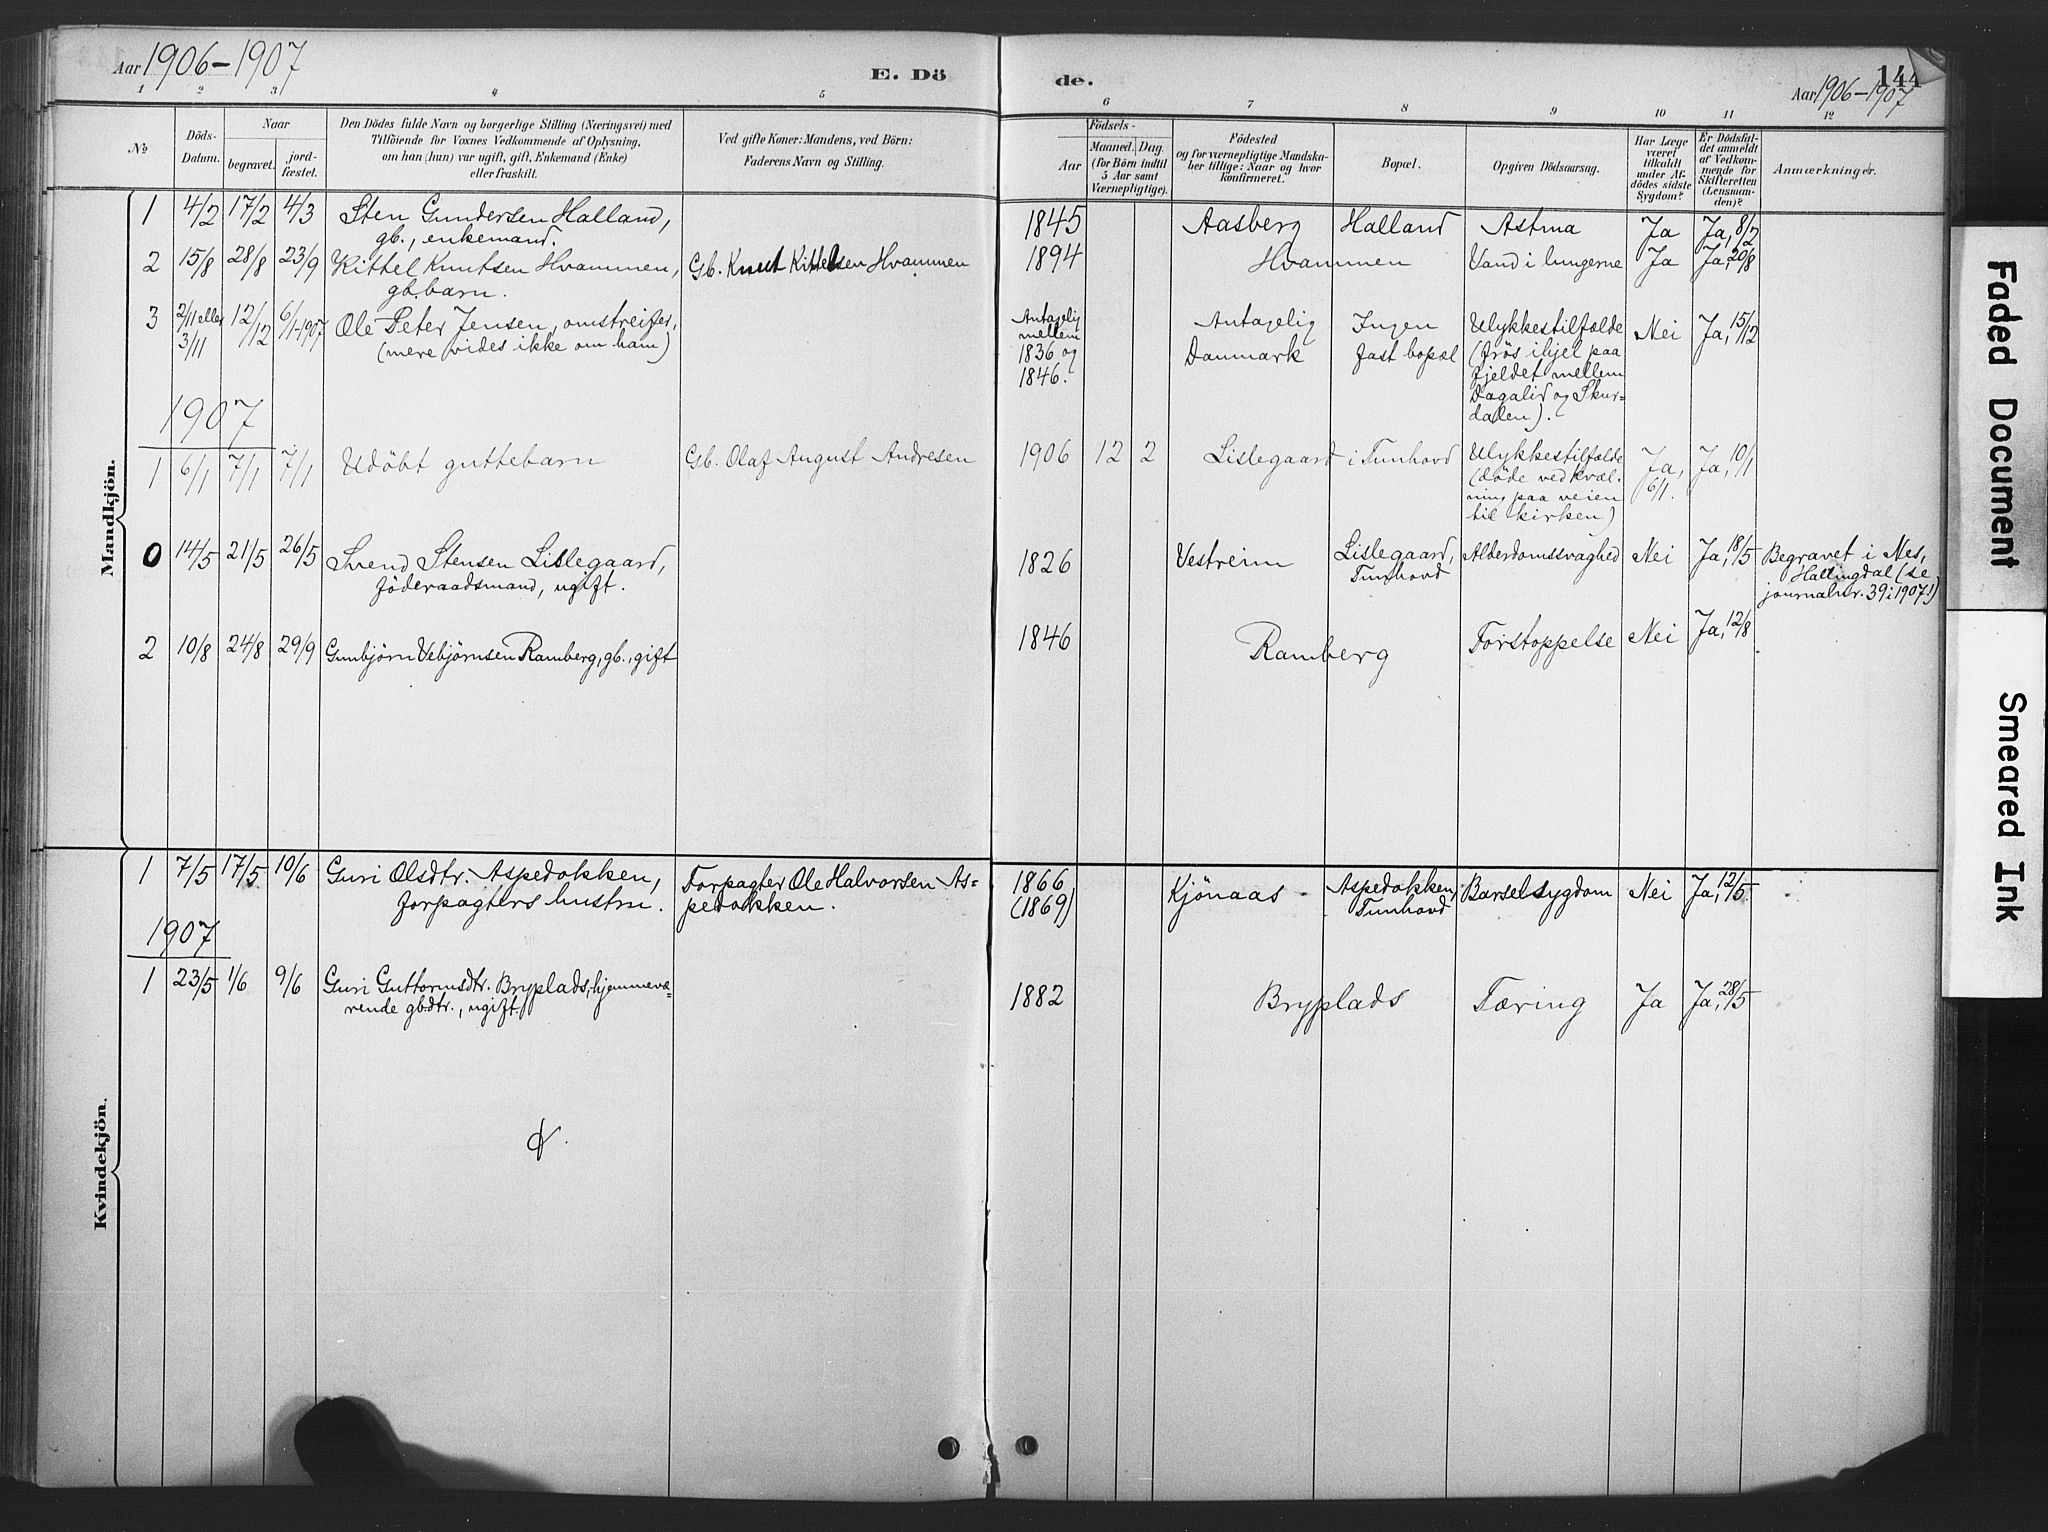 Aar 1906-1907
E. Dö
de.
144
Aar 1906-1907
1 2 3 4 5 6 7 8 9 10 11 12
№
Döds-
Datum.
Naar
begravet.
jord-
fæstet.
Den Dödes fulde Navn og borgerlige Stilling (Næringsvei) med
Tilföiende for Voxnes Vedkommende af Oplysning,
om han (hun) var ugift, gift, Enkemand (Enke)
eller fraskilt.
Ved gifte Koner: Mandens, ved Börn:
Faderens Navn og Stilling.
Födsels-
Aar
Maaned.
Dag.
(for Börn indtil
5 Aar samt
Værnepligtige).
Födested
og for værnepligtige Mandska-
ber tillige: Naar og hvor
konfirmeret.
Bopæl.
Opgiven Dödsaarsag.
Har Læge
været
tilkaldt
under Af-
dödes sidste
Sygdom?
Er Dödsfal-
det anmeldt
af Vedkom-
mende for
Skifteretten
(Lensman-
den)?
Anmærkninger.
Mandkjön.
1 4/2 17/2 4/3 Sten Gundersen Halland,
gb., enkemand.
1845 Aasberg Halland Astma Ja Ja, 8/2
2 15/8 28/8 23/9 Kittel Knutsen Hvammen,
gb.barn.
Gb. Knut Kittelsen Hvammen
1894 Hvammen Vand i lungerne Ja Ja, 20/8
3 2/11 eller
3/11
12/12 6/1-1907 Ole Peter Jensen, omstreifer,
(mere vides ikke om ham)
Antagelig
mellem
1836 og
1846.
Antagelig
Danmark
Ingen
fast bopæl
Ulykkestilfælde
(frös ihjel paa
fjeldet mellem
Dagalid og Skur=
dalen).
Nei Ja, 15/12
1907
1 6/1 7/1 7/1 Udöbt guttebarn Gb. Olaf August Andresen
1906 12 2 Lislegaard i Tunhovd
Ulykkestilfælde
(döde ved kvæl-
ning paa veien
til kirken)
Ja,
6/1.
Ja, 10/1
0 14/5 21/5 26/5 Svend Stensen Lislegaard,
föderaadsmand, ugift.
1826 Vestreim Lislegaard,
Tunhovd
Alderdomssvaghed Nei Ja, 18/5 Begravet i Nes,
Hallingdal (se
journalnr. 39 i 1907!)
2 10/8 24/8 29/9 Gunbjørn Vebjørnsen Ramberg, gb., gift
1846 Ramberg Forstoppelse Nei Ja, 12/8
Kvindekjön.
1 7/5 17/5 10/6 Guri Olsdtr. Aspedokken,
forpagters hustru.
Forpagter Ole Halvorsen As=
pedokken.
1866
(1869)
Kjönaas Aspedokken,
Tunhovd
Barselsygdom Nei Ja, 12/5
1907
1 23/5 1/6 9/6 Guri Guttormsdtr. Bryplads, hjemmevæ=
rende gb.dtr., ugift.
1882 Bryplads Tæring Ja Ja, 28/5
Faded Document
Smeared Ink